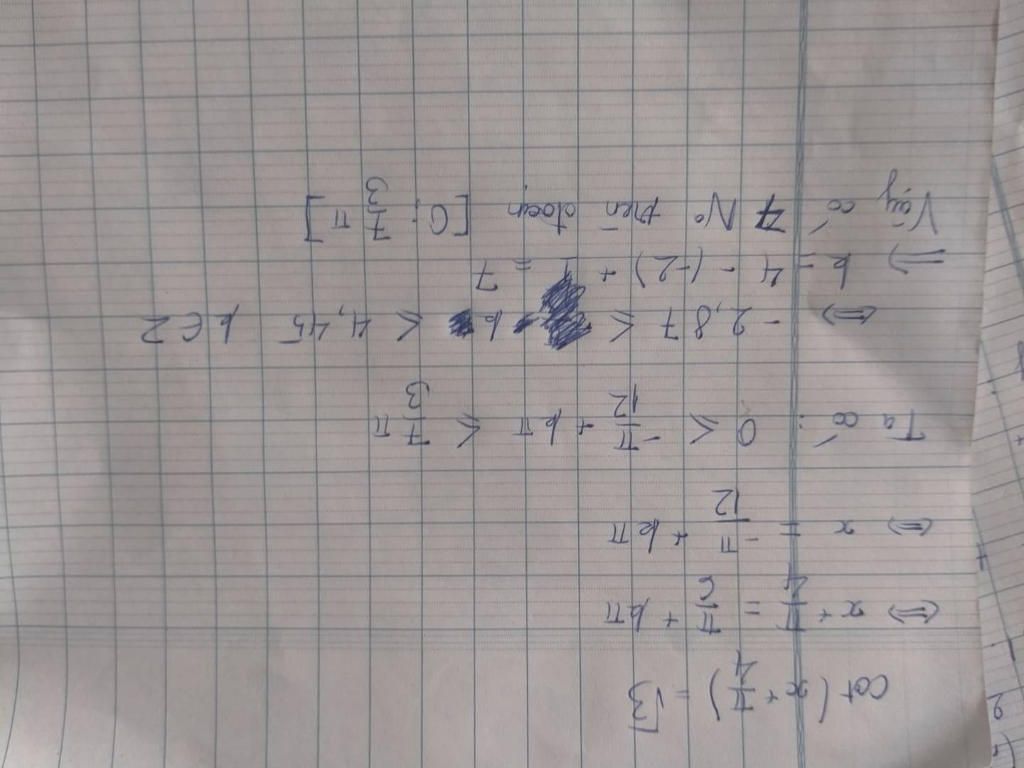 cot(x + π/4) = √3
⇔ x + π/4 = π/6 + kπ
⇔ x = -π/12 + kπ
Ta có: 0 ≤ -π/12 + kπ ≤ 7/3 π
⇔ -2,87 ≤ k ≤ 4,45 k ∈ Z
⇒ k = 4 - (-2) + 1 = 7
Vậy có 7 No trên đoạn [0; 7/3 π]